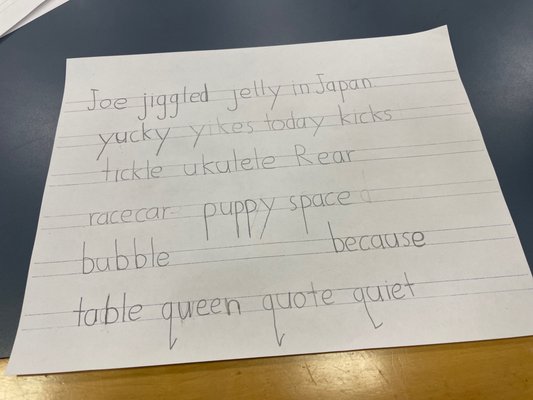 Joe jiggled jelly in Japan
yucky yikes today kicks
tickle ukulele Rear
racecar puppy space
bubble because
table queen quote quiet